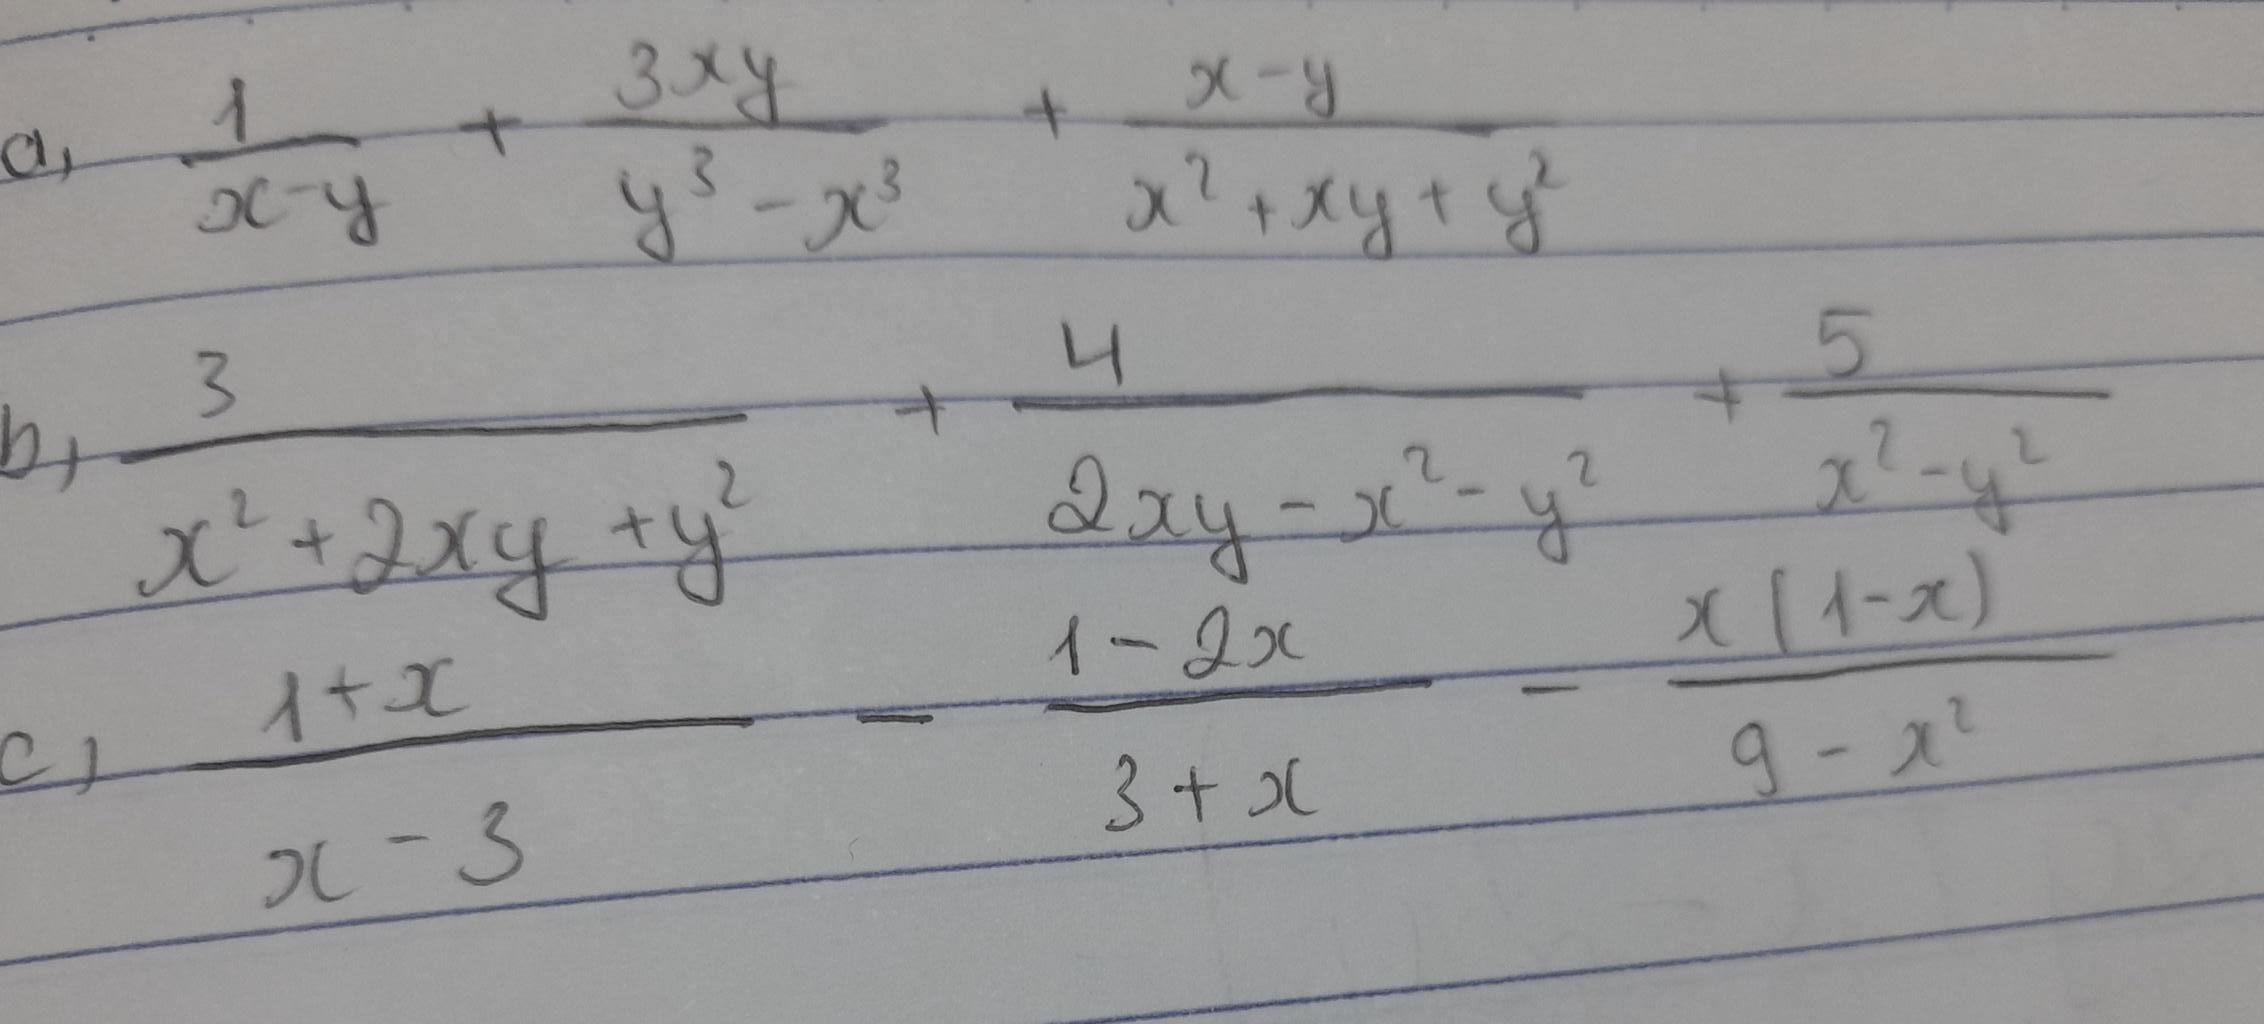 a, 1/(x-y) + 3xy/(y³-x³) + (x-y)/(x²+xy+y²)
b, 3/(x²+2xy+y²) + 4/(2xy-x²-y²) + 5/(x²-y²)
c, (1+x)/(x-3) - (1-2x)/(3+x) - x(1-x)/(9-x²)